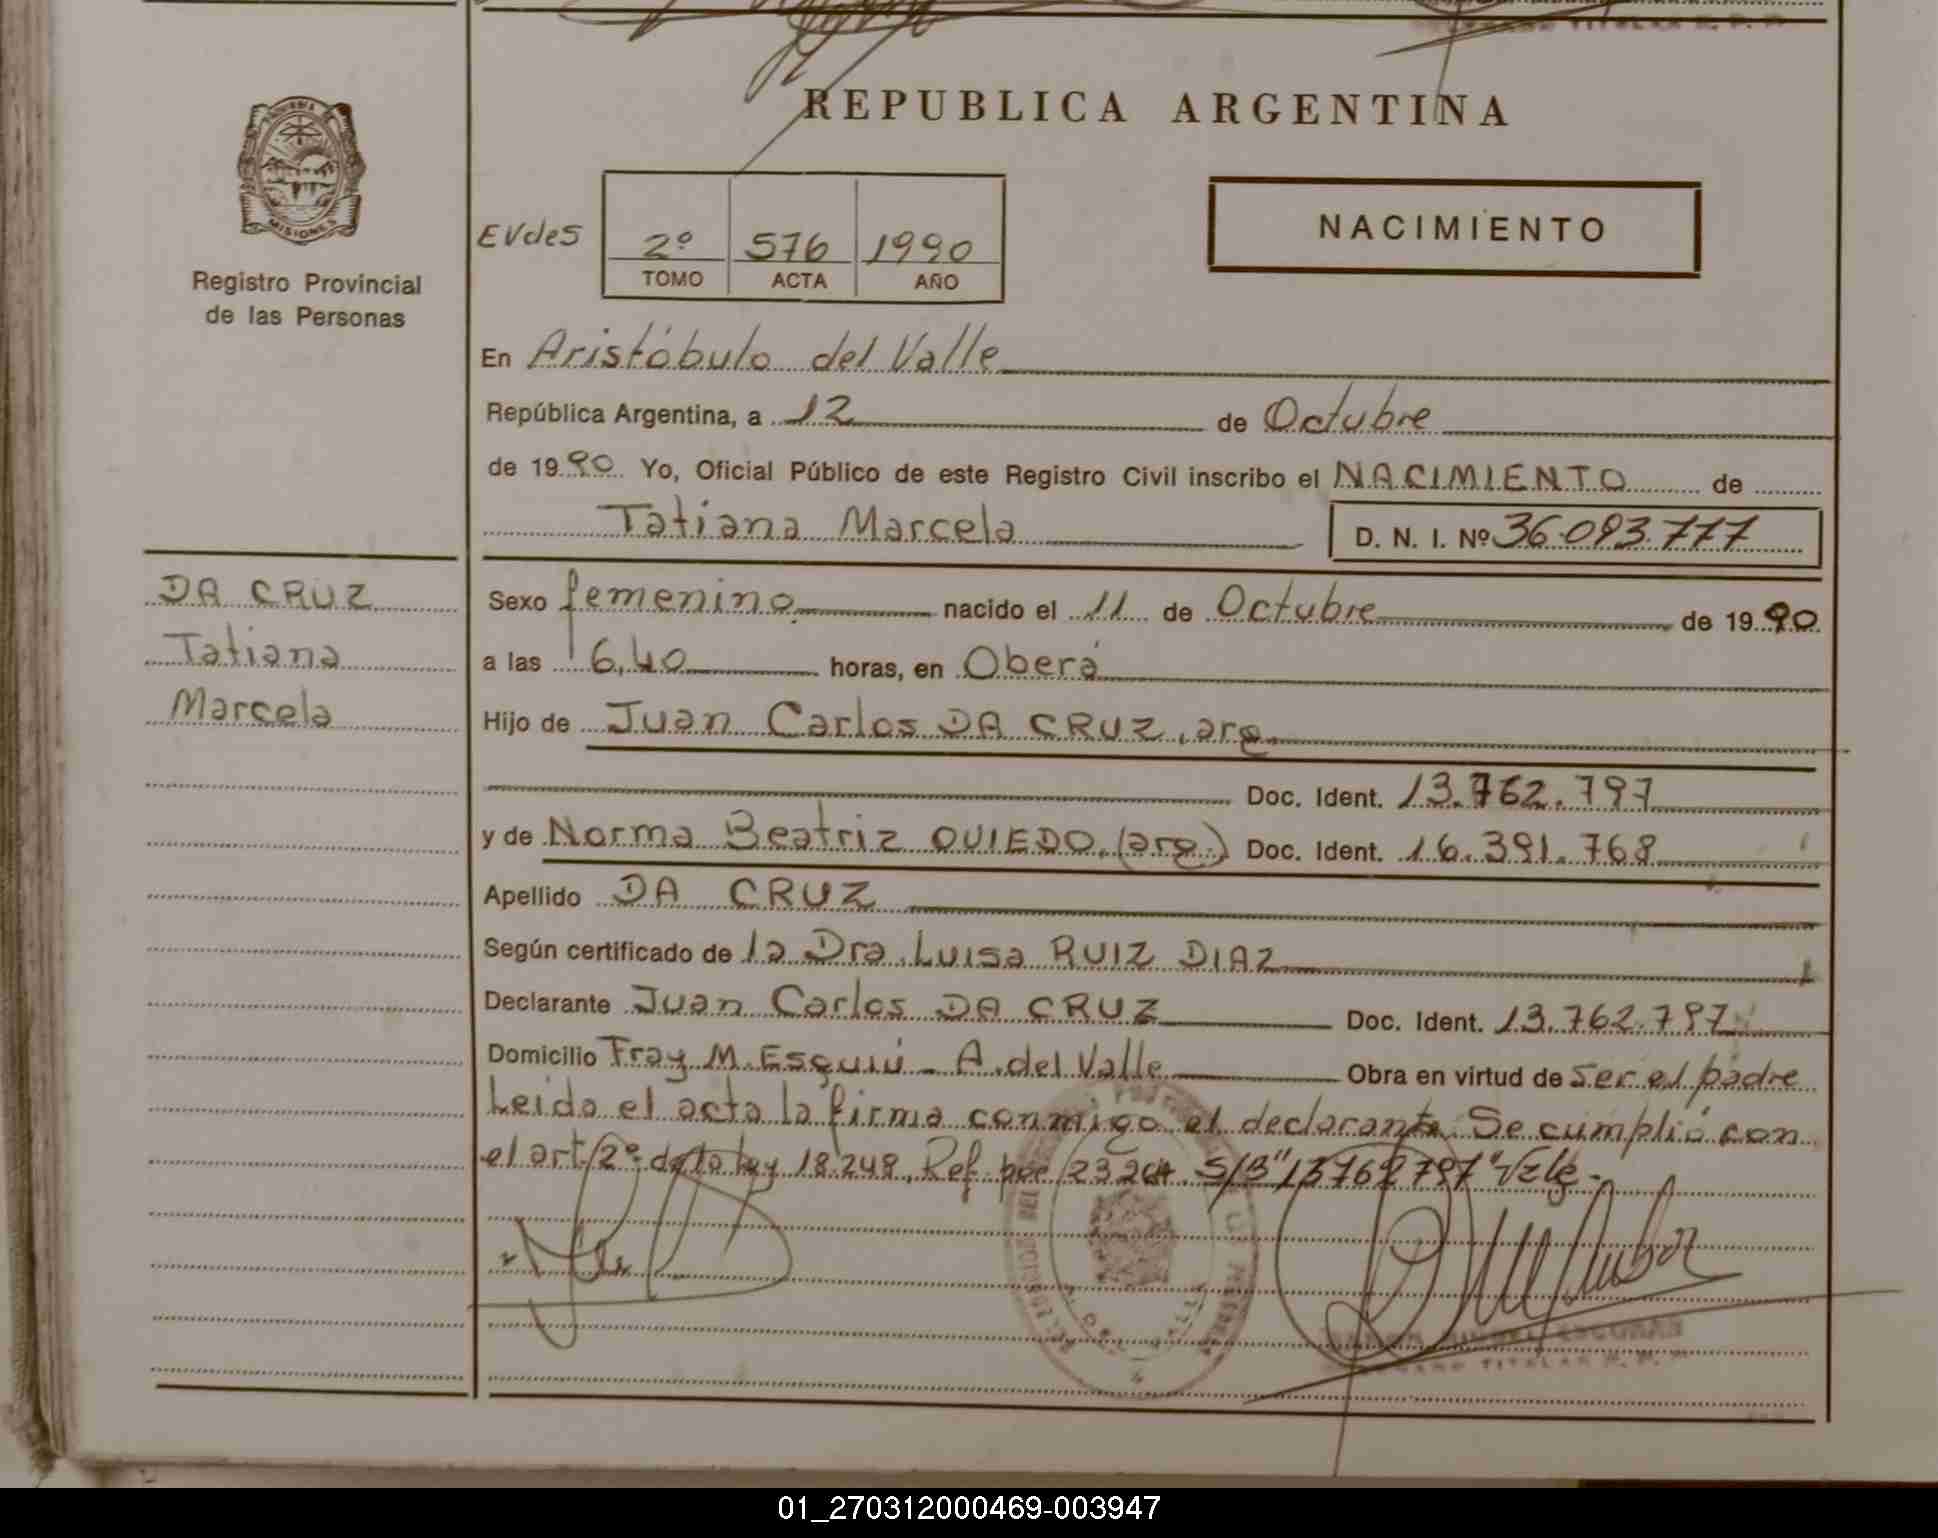 REPUBLICA ARGENTINA
MISIONES
Registro Provincial
de las Personas
EVdes
2º 576 1990
TOMO ACTA AÑO
NACIMIENTO
En Aristóbulo del Valle
República Argentina, a 12 de Octubre
de 1990 Yo, Oficial Público de este Registro Civil inscribo el NACIMIENTO de
Tatiana Marcela D. N. I. Nº 36.093.777
DA CRUZ
Tatiana
Marcela
Sexo femenino nacido el 11 de Octubre de 1990
a las 16,40 horas, en Oberá
Hijo de Juan Carlos DA CRUZ, arg.
Doc. Ident. 13.762.797
y de Norma Beatriz OVIEDO, (arg.) Doc. Ident. 16.391.768
Apellido DA CRUZ
Según certificado de la Dra. Luisa RUIZ DIAZ
Declarante Juan Carlos DA CRUZ Doc. Ident. 13.762.797
Domicilio Fray M. Esquiú - A. del Valle Obra en virtud de ser el padre
Leida el acta la firma conmigo el declarante. Se cumplió con
el art. 2º de la ley 18.248, Ref. por 23.264. S/B "13762797" Vale.-
01_270312000469-003947